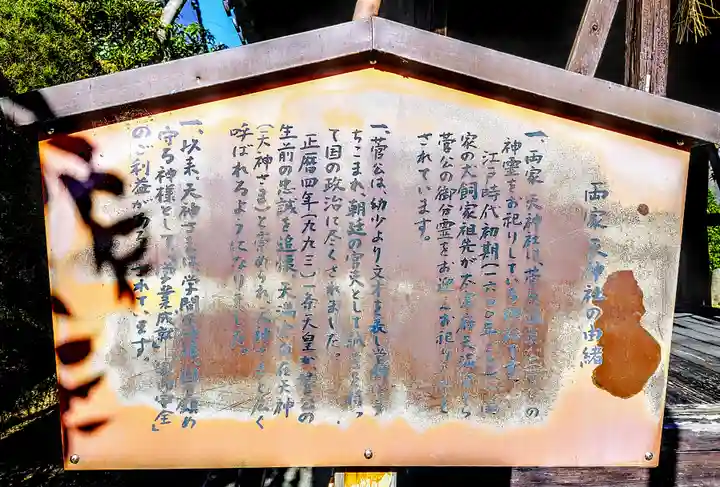 両家天神社の由緒
一、両家天神社は、菅原道真公の
神霊をお祀りしている神社です。
江戸時代初期(一六
家の犬飼家祖先が太宰府天満宮から
菅公の御分霊をお迎えお祀り
されています。
一、菅公は、幼少より文才を表し学問
ちこまれ、朝廷の官吏として誠を持っ
て国の政治に尽くされました。
正暦四年(九九三)一条天皇が菅公の
生前の忠誠を追懐、天満大自在天神
(天神さま)と崇められ、天神さまと広く
呼ばれるようになりました。
一、以来、天神さまは、学問
守る神様として、学業成就
のご利益があるとされています。